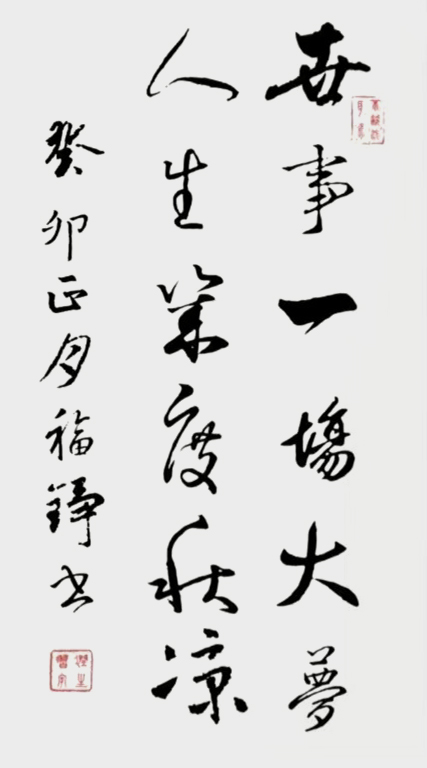 世事一場大夢
人生幾度秋凉
癸卯正月福錚书